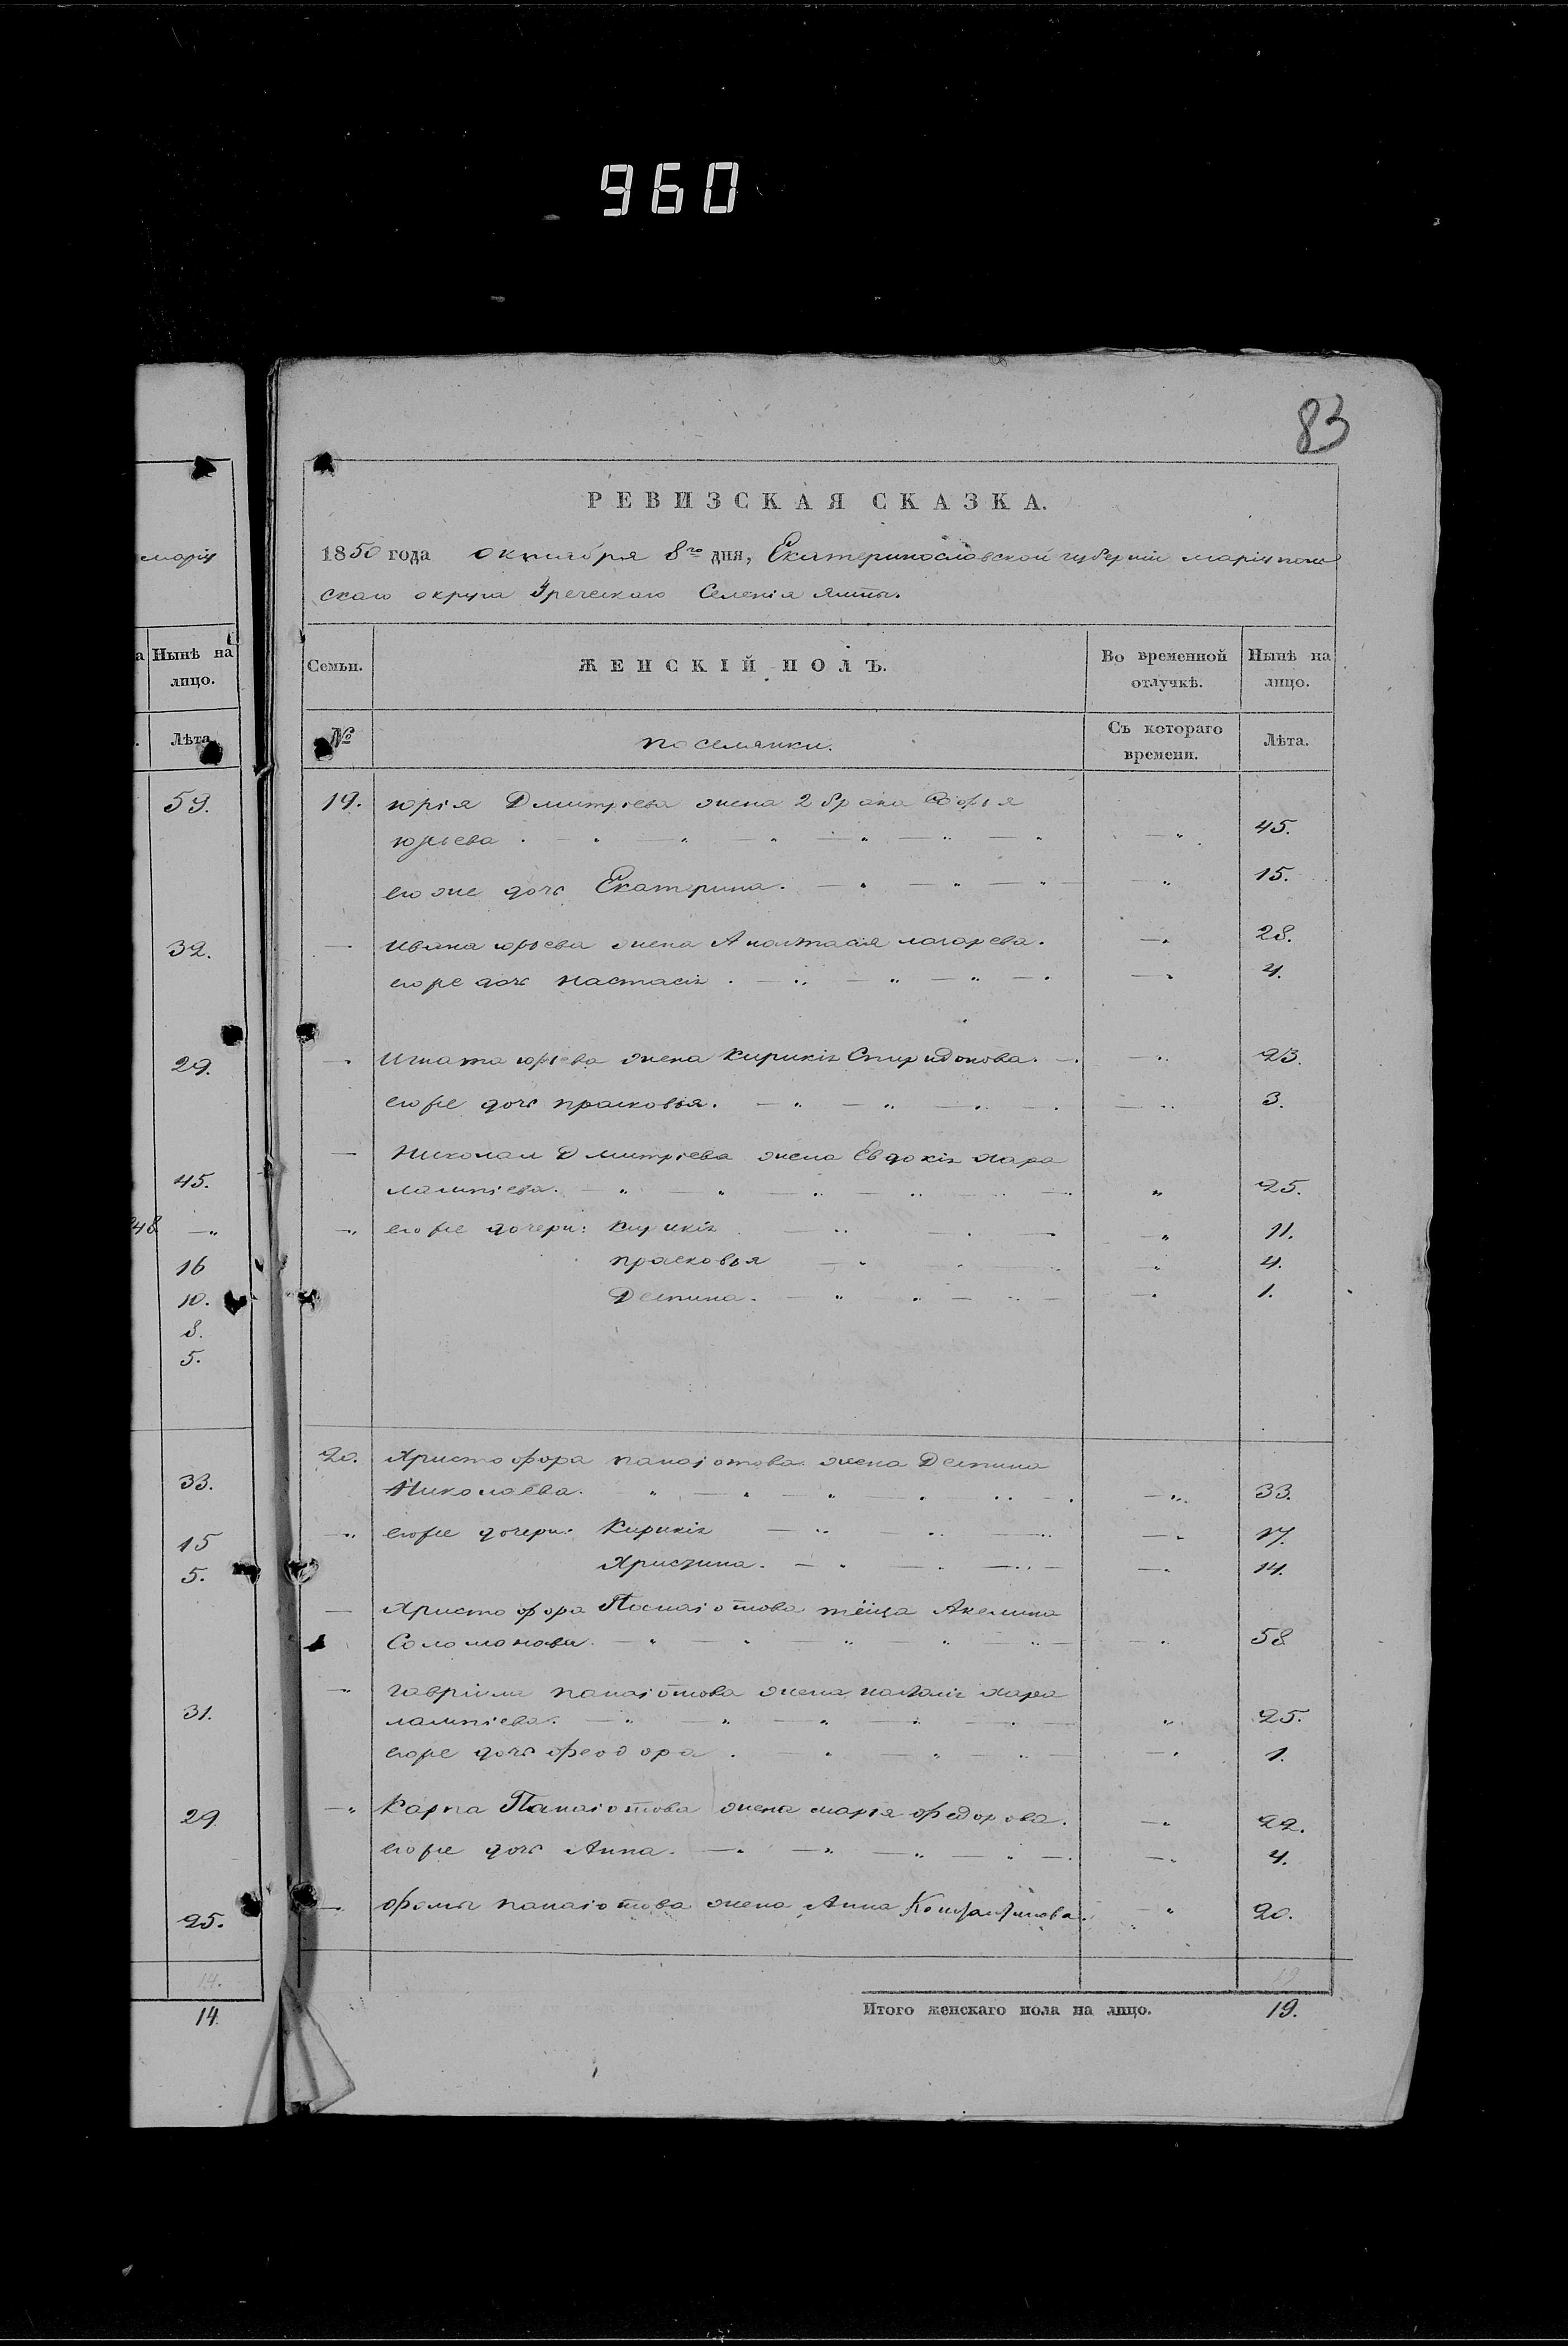 960
83
РЕВИЗСКАЯ СКАЗКА.
1850 года октября 8го дня, Екатеринославской губерніи маріуполь
скаго округа Греческаго Селенія Ялты.
марiу
Нынѣ на
лицо.
Лѣта
59.
32.
29.
45.
848 —"
16
10.
8.
5.
33.
15
5.
31.
29
25.
14.
14
Семьи.
ЖЕНСКІЙ ПОЛЪ.
Во временной
отлучкѣ.
Нынѣ на
лицо.
№
поселянки.
Съ котораго
времени.
Лѣта.
19. юрія Дмитріева жена 2 брака Софія
юрьева. 45.
его же дочь Екатерина. 15.
Ивана юрьева жена Анастасія лазарева. 28.
егоже дочь Настасія. 4.
Игната юрьева жена Кирикія Спиридонова. 23.
егоже дочь прасковья. 3.
Николая Дмитріева жена Евдокія хара
лампіева. 25.
егоже дочери: Кирикія 11.
прасковья 4.
Деспина. 1.
20. Христофора панаіотова жена Деспина
Николаева. 33.
егоже дочери: Кирикія 17.
Христина. 14.
Христофора Панаіотова тёща Акелина
Соломонова. 58
гавріила панаіотова жена наталія хара
лампіева. 25.
егоже дочь феодора. 1.
Карпа Панаіотова жена марія федорова. 22.
егоже дочь Анна. 4.
фомы панаіотова жена Анна Константинова. 20.
19
Итого женскаго пола на лицо. 19.